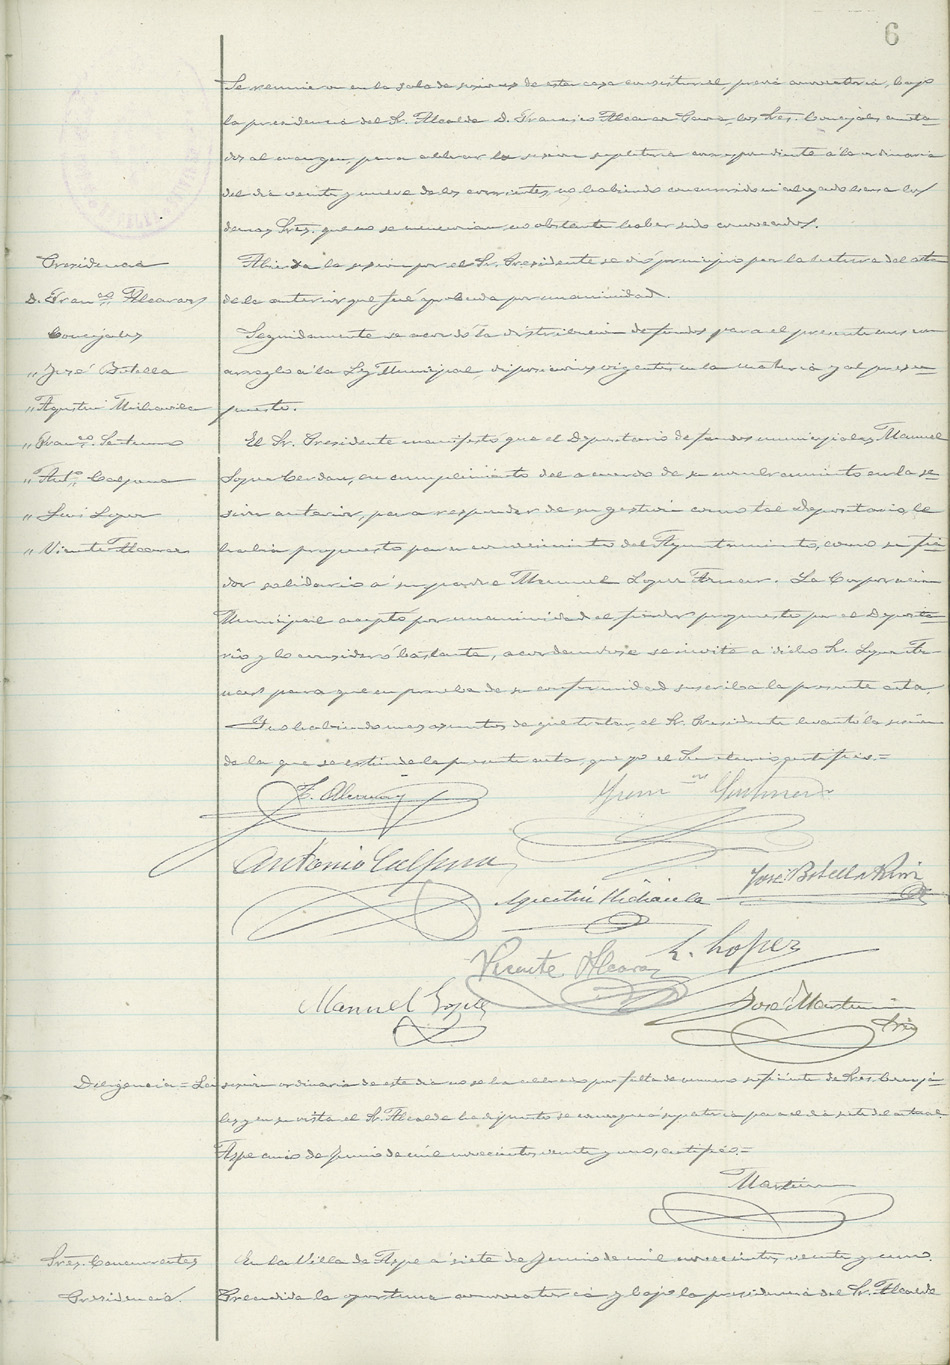 6
Se reunieron en la sala de sesiones de esta casa consistorial, previa convocatoria, bajo
la presidencia del Sr. Alcalde D. Francisco Alcaraz los Sres. Concejales anota-
dos al margen, para celebrar la sesion supletoria correspondiente á la ordinaria
del dia veinte y nueve de los corrientes, no habiendo concurrido ni alegado excusa los
demas Sres. que no se mencionan, no obstante haber sido convocados.
Presidencia
D. Franco Alcaraz
Concejales
" José Botella
" Agustin Mira
" Franco
" Anto Calpena
" Luis Lopez
" Vicente Alcaraz
Abierta la sesion por el Sr. Presidente se dió principio por la lectura del acta
de la anterior que fué aprobada por unanimidad.
Seguidamente se acordó la distribucion de fondos para el presente mes con
arreglo á la Ley Municipal, disposiciones vigentes en la materia y al presu-
puesto.
El Sr. Presidente manifestó que el Depositario de fondos municipales, Manuel
Lopez Cerdan, en cumplimiento del acuerdo de su nombramiento en la se-
sion anterior, para responder de su gestion como tal Depositario, le
habia propuesto para conocimiento del Ayuntamiento, como su fia-
dor solidario á su padre Manuel Lopez. La Corporacion
Municipal aceptó por unanimidad el fiador propuesto por el Deposita-
rio y lo consideró bastante, acordandose se invite a dicho Sr. Lopez
para que en prueba de su conformidad suscriba la presente acta.
Y no habiendo mas asuntos de que tratar, el Sr. Presidente levantó la sesion
de la que se estiende la presente acta, que yo el Secretario certifico.=
F. Alcaraz
Antonio Calpena
José Botella
Vicente Alcaraz
L. Lopez
Manuel Lopez
José Martinez
Diligencia = La sesion ordinaria de este dia no se ha celebrado por falta de numero suficiente de Sres. Conceja-
les y en su vista el Sr. Alcalde ha dispuesto se convoque á supletoria para el dia siete del actual.
Aspe cinco de Junio de mil novecientos veinte y uno, certifico.=
Martinez
Sres. Concurrentes
Presidencia.
En la Villa de Aspe a siete de Junio de mil novecientos veinte y uno.
Precedida la oportuna convocatoria y bajo la presidencia del Sr. Alcalde